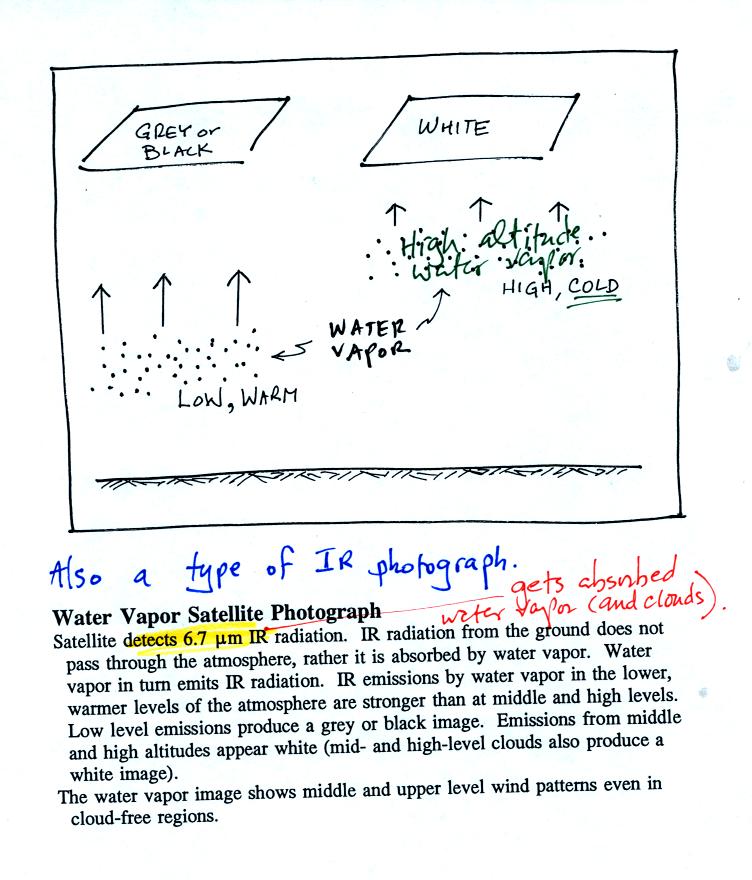 GREY or
BLACK
WHITE
High altitude
water vapor.
HIGH, COLD
WATER
VAPOR
LOW, WARM
Also a type of IR photograph.
gets absorbed
water vapor (and clouds).
Water Vapor Satellite Photograph
Satellite detects 6.7 µm IR radiation. IR radiation from the ground does not
pass through the atmosphere, rather it is absorbed by water vapor. Water
vapor in turn emits IR radiation. IR emissions by water vapor in the lower,
warmer levels of the atmosphere are stronger than at middle and high levels.
Low level emissions produce a grey or black image. Emissions from middle
and high altitudes appear white (mid- and high-level clouds also produce a
white image).
The water vapor image shows middle and upper level wind patterns even in
cloud-free regions.